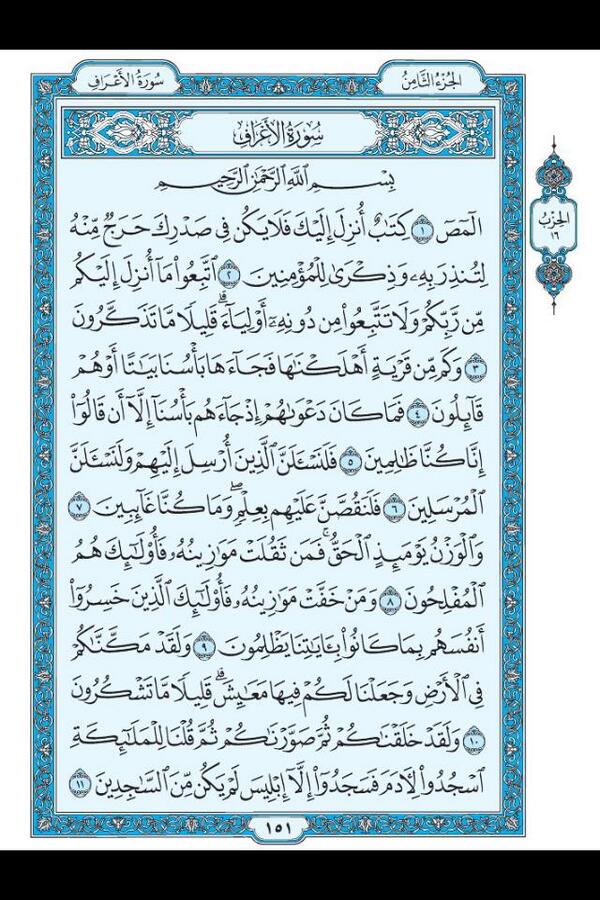 سُورَةُ الأَعْرَافِ
الجُزْءُ الثَّامِنُ
سُورَةُ الأَعْرَافِ
الحِزْبُ
١٦
بِسْمِ اللَّهِ الرَّحْمَٰنِ الرَّحِيمِ
الٓمٓصٓ ١ كِتَٰبٌ أُنزِلَ إِلَيْكَ فَلَا يَكُن فِي صَدْرِكَ حَرَجٌ مِّنْهُ
لِتُنذِرَ بِهِۦ وَذِكْرَىٰ لِلْمُؤْمِنِينَ ٢ ٱتَّبِعُوا۟ مَآ أُنزِلَ إِلَيْكُم
مِّن رَّبِّكُمْ وَلَا تَتَّبِعُوا۟ مِن دُونِهِۦٓ أَوْلِيَآءَۗ قَلِيلًا مَّا تَذَكَّرُونَ
٣ وَكَم مِّن قَرْيَةٍ أَهْلَكْنَٰهَا فَجَآءَهَا بَأْسُنَا بَيَٰتًا أَوْ هُمْ
قَآئِلُونَ ٤ فَمَا كَانَ دَعْوَىٰهُمْ إِذْ جَآءَهُم بَأْسُنَآ إِلَّآ أَن قَالُوٓا۟
إِنَّا كُنَّا ظَٰلِمِينَ ٥ فَلَنَسْـَٔلَنَّ ٱلَّذِينَ أُرْسِلَ إِلَيْهِمْ وَلَنَسْـَٔلَنَّ
ٱلْمُرْسَلِينَ ٦ فَلَنَقُصَّنَّ عَلَيْهِم بِعِلْمٍۖ وَمَا كُنَّا غَآئِبِينَ ٧
وَٱلْوَزْنُ يَوْمَئِذٍ ٱلْحَقُّۚ فَمَن ثَقُلَتْ مَوَٰزِينُهُۥ فَأُو۟لَٰٓئِكَ هُمُ
ٱلْمُفْلِحُونَ ٨ وَمَنْ خَفَّتْ مَوَٰزِينُهُۥ فَأُو۟لَٰٓئِكَ ٱلَّذِينَ خَسِرُوٓا۟
أَنفُسَهُم بِمَا كَانُوا۟ بِـَٔايَٰتِنَا يَظْلِمُونَ ٩ وَلَقَدْ مَكَّنَّٰكُمْ
فِي ٱلْأَرْضِ وَجَعَلْنَا لَكُمْ فِيهَا مَعَٰيِشَۗ قَلِيلًا مَّا تَشْكُرُونَ
١٠ وَلَقَدْ خَلَقْنَٰكُمْ ثُمَّ صَوَّرْنَٰكُمْ ثُمَّ قُلْنَا لِلْمَلَٰٓئِكَةِ
ٱسْجُدُوا۟ لِـَٔادَمَ فَسَجَدُوٓا۟ إِلَّآ إِبْلِيسَ لَمْ يَكُن مِّنَ ٱلسَّٰجِدِينَ ١١
١٥١